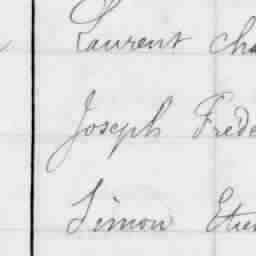 Laurent Cha
Joseph Frede
Simon Etien